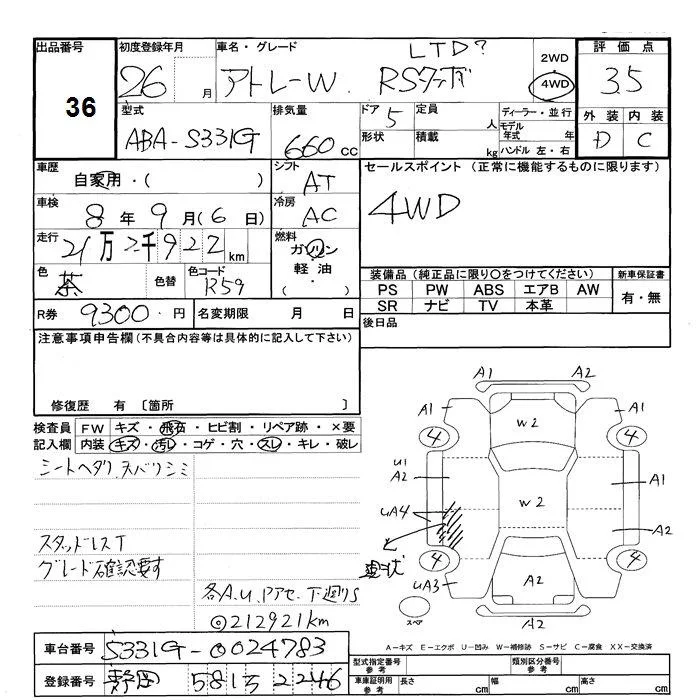 出品番号 36
初度登録年月 26 月
車名・グレード アトレーW RSターボ LTD?
2WD
4WD
評価点 3.5
外装 D 内装 C
型式 ABA-S331G
排気量 660 cc
ドア 5
形状
定員 人
積載 kg
ディーラー・並行
モデル年式 年
ハンドル 左・右
車歴 自家用・( )
シフト AT
車検 8年 9月(6日)
冷房 AC
走行 21万2千922km
燃料 ガソリン・軽油・( )
色 茶 色替 色コード R59
R券 9300円 名変期限 月 日
セールスポイント (正常に機能するものに限ります)
4WD
装備品(純正品に限り〇をつけてください) 新車保証書
PS PW ABS エアB AW 有・無
SR ナビ TV 本革
後日品
注意事項申告欄(不具合内容等は具体的に記入して下さい)
修復歴 有 〔箇所 〕
検査員 FW キズ・飛石・ヒビ割・リペア跡・×要
記入欄 内装 キズ・汚レ・コゲ・穴・スレ・キレ・破レ
シートヘタリ スバリシミ
スタッドレスT
グレード確認要す
各A.U.Pアセ.下廻りS
◎212921km
A1 A2
A1 A1
4 W2 4
U1
A2 A1
W2
UA4 A2
現状
4 4
UA3 A2
スペア A2
A-キズ E-エクボ U-凹み W-補修跡 S-サビ C-腐食 XX-交換済
車台番号 S331G-0024783
登録番号 静岡 581 2246
型式指定番号 参考 類別区分番号 参考
車庫証明用 参考 長さ cm 幅 cm 高さ cm